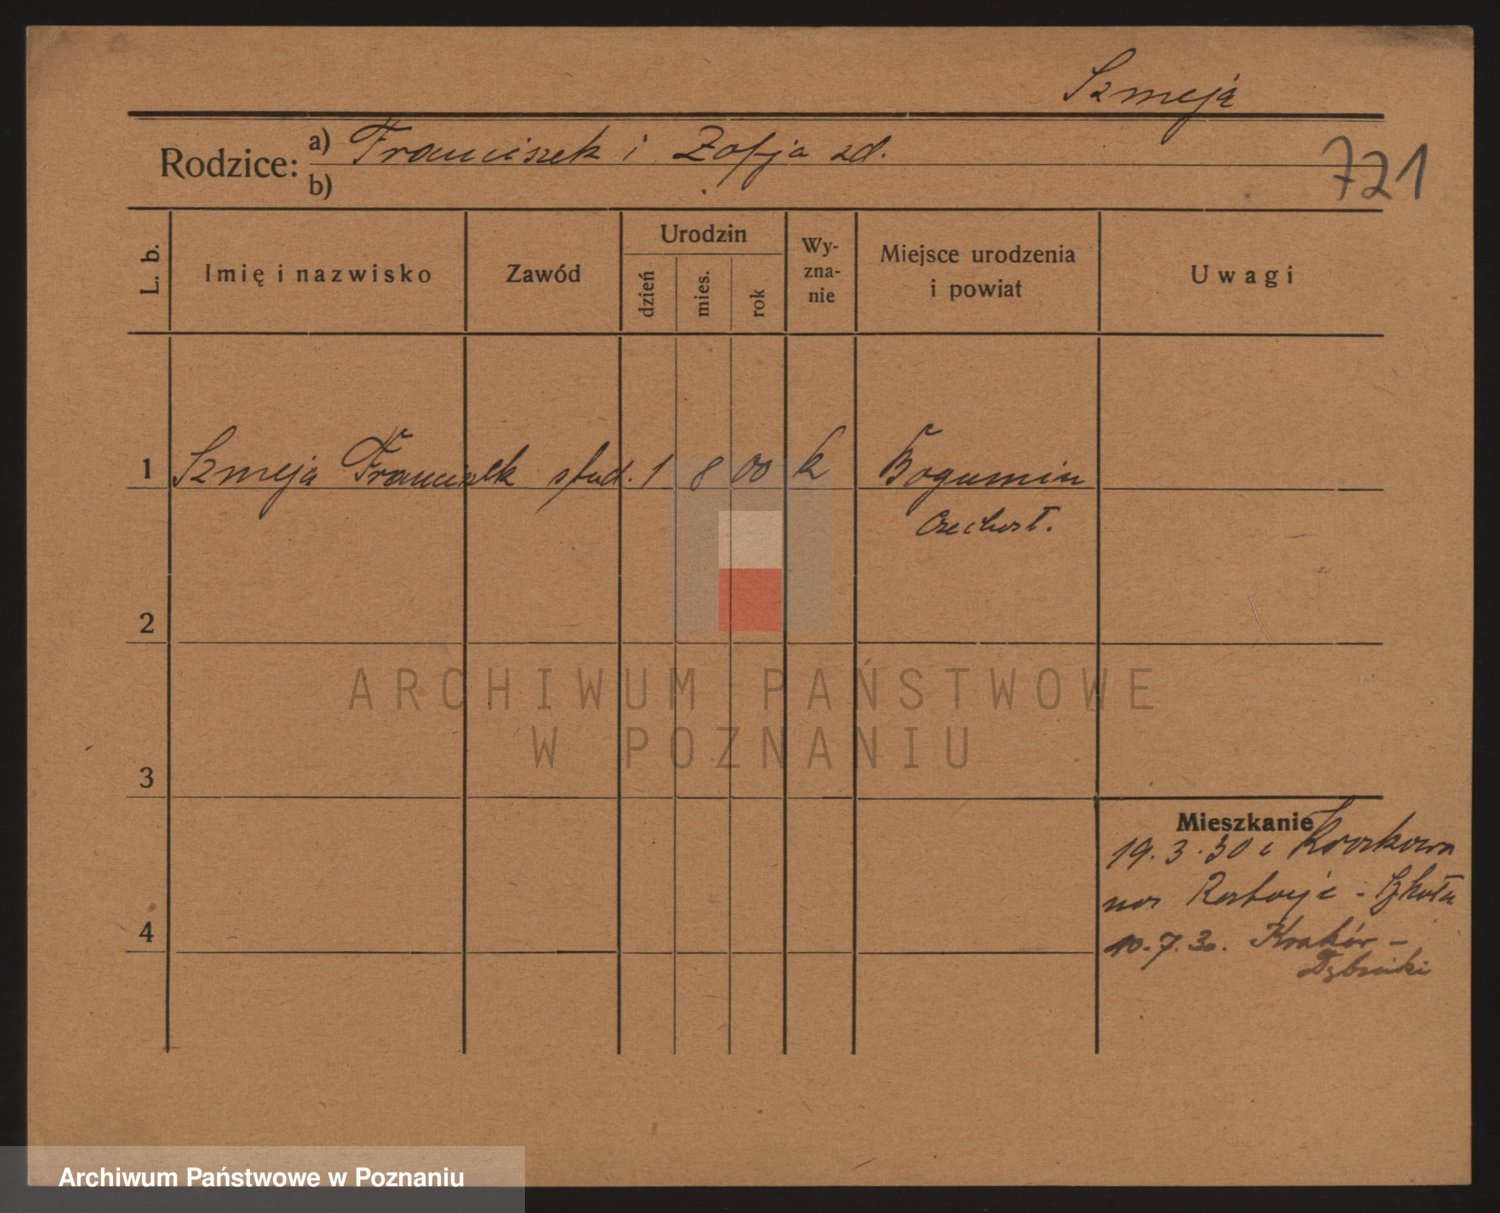 Szmeja
Rodzice: a) Franciszek i Zofja zd.
721
b)
L. b. Imię i nazwisko Zawód Urodzin dzień mies. rok Wyznanie Miejsce urodzenia i powiat Uwagi
1 Szmeja Franciszek stud. 1 8 00 k Bogumin
Czechosł.
2
ARCHIWUM PAŃSTWOWE
W POZNANIU
3
Mieszkanie
19.3.30 z Krakowa
- Szkoła
4
10.7.30. Kraków -
Dębniki
Archiwum Państwowe w Poznaniu